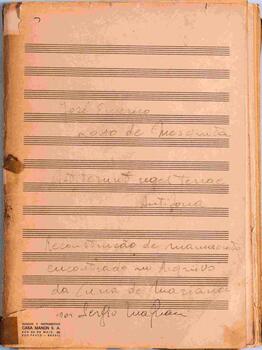 José Emerico
Lobo de Mesquita
Astiterunt reges terrae
Antífona
Reconstrução de manuscrito
encontrado no Arquivo
da Cúria de Mariana
por Sergio Magnani
CASA MANON S. A.
RUA 24 DE MAIO, 242
SÃO PAULO - BRASIL